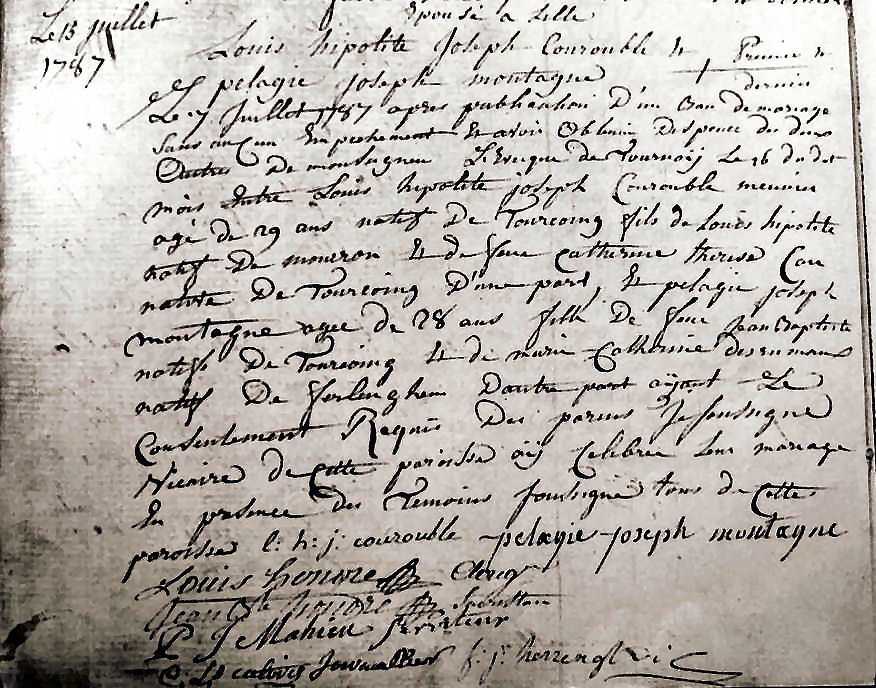 épousé a Lille
Le 15 juillet
1787
Louis hipolite Joseph Courouble et Premier
pelagie joseph montagne dernier
Le 17 Juillet 1787 apres publication D'un Ban de mariage
sans aucun Empechement Et avoir Obtenu Dispence des deux
Autres De monsigneu L'Eveque de Tournaÿ Le 16 du dit
mois Entre Louis hipolite joseph Courouble meunier
agé de 29 ans natif De Tourcoing fils de Louis hipolite
natif De mouvron Et de feue Catherine therese Cau
native De Tourcoing D'une part, Et pelagie joseph
montagne agee de 28 ans fille De feue Jean Baptiste
natif De Tourcoing Et de marie Catherine
natif De D'autre part aÿant Le
Consentement Requis Des parens Je soussigne
Vicaire de Cette paroisse aÿ Celebree leur mariage
En presence des Temoins soussigne tous de Cette
paroisse l: h: j: courouble pelagie joseph montagne
Louis honore Clercq
Jean
P J Mahieu
f: j: herrengt vic